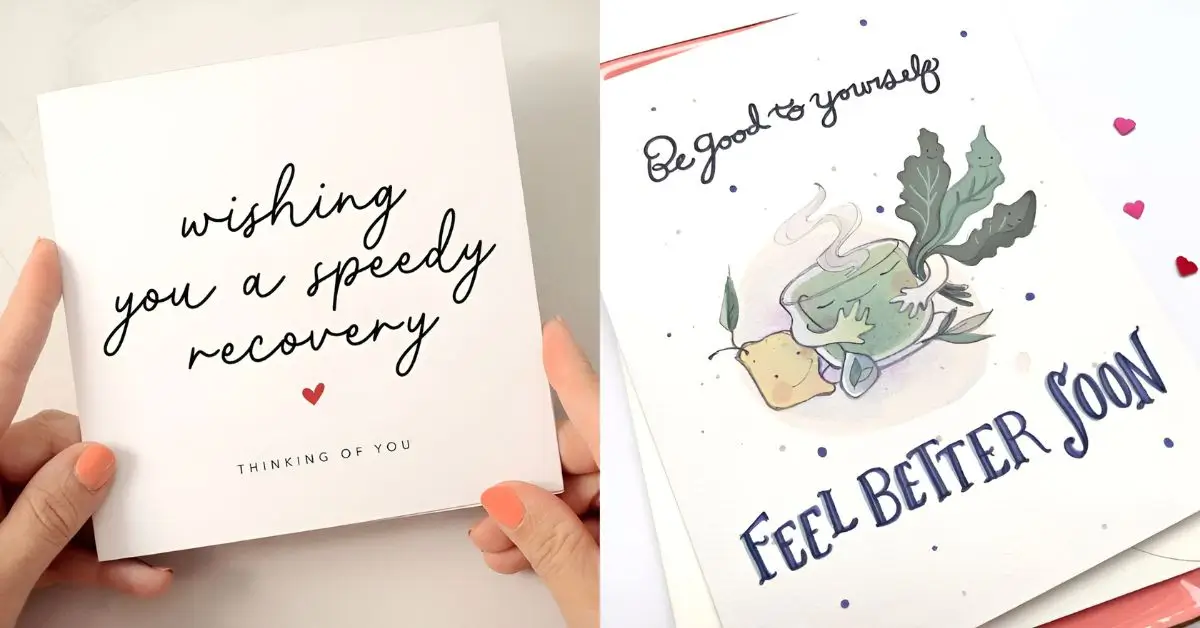 wishing
you a speedy
recovery
THINKING OF YOU
Be good to yourself
FEEL BETTER SOON